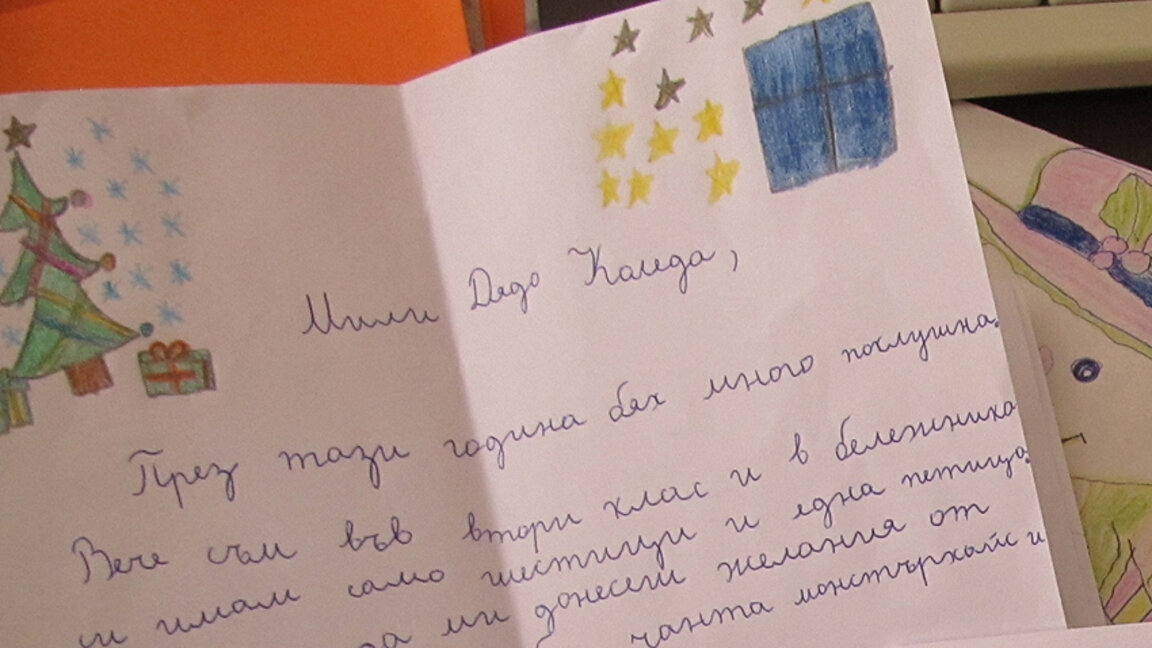 Мили Дядо Коледа,
През тази година бях много послушна.
Вече съм във втори клас и в бележника
си имам само шестици и една петица.
да ми донесеш желания от
чанта монстърхайс и